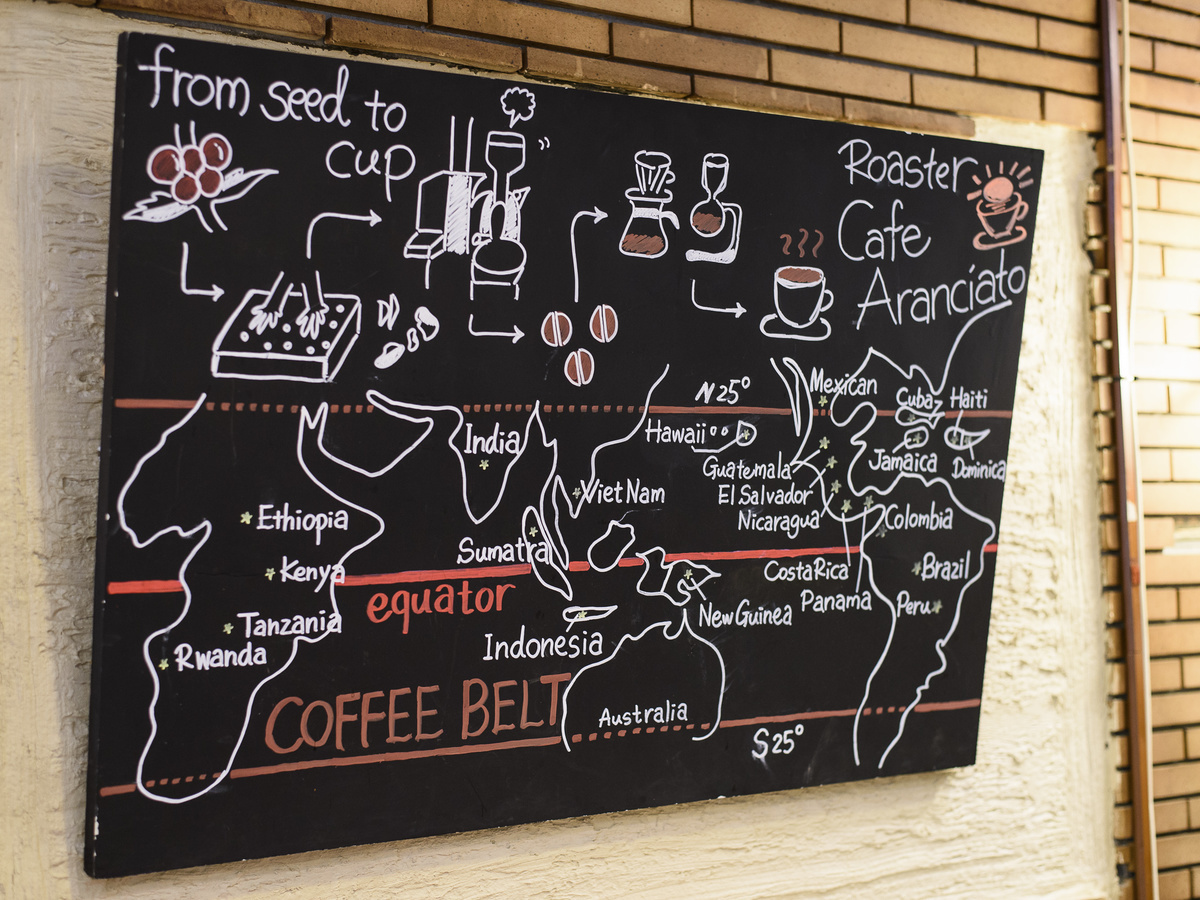 from seed to
cup
Roaster
Cafe
Aranciato
N 25°
Mexican
Cuba
Haiti
India
Hawaii
Guatemala
Jamaica
Dominica
Viet Nam
El Salvador
Nicaragua
Colombia
Ethiopia
Sumatra
Kenya
Costa Rica
Brazil
equator
Panama
Peru
Tanzania
New Guinea
Rwanda
Indonesia
COFFEE BELT
Australia
S 25°